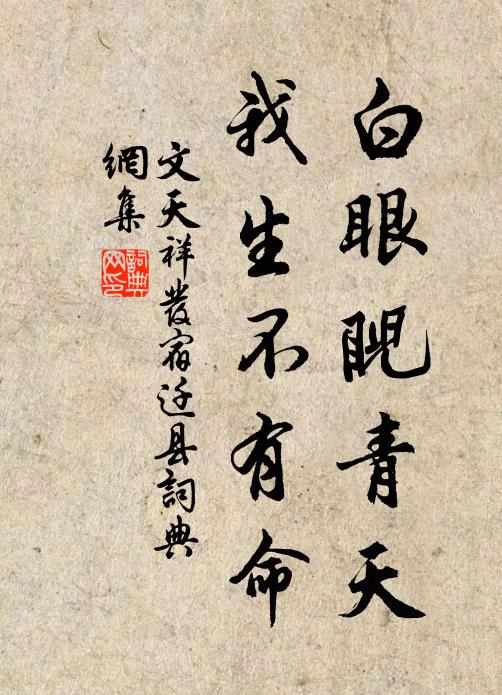 白眼睨青天
我生不有命
文天祥發宿迁县詞典
網集
詞典
网印